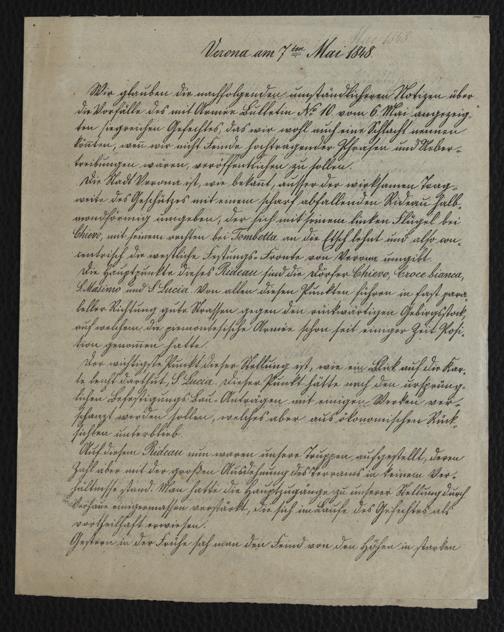 Verona am 7ten Mai 1848.
Wir glauben die nachfolgenden umständlicheren Notizen über
die Vorfälle des mit Armee Bulletin No 10 vom 6. Mai angezeig-
ten siegreichen Gefechtes, das wir wohl auch eine Schlacht nennen
könten, wen wir nicht Feinde hochtragender Phrasen und Ueber-
treibungen wären, veröffentlichen zu sollen.
Die Stadt Verona ist, wie bekant, ausser der wirksamen Trag-
weite des Geschützes mit einem scharf abfallenden Rideau halb-
mondförmig umgeben, der sich mit seinem linken Flügel bei
Chievo, mit seinem rechten bei Tombetta an die Etsch lehnt und also con-
centrisch die westliche Festungs-Fronte von Verona umgibt.
Die Hauptpunkte dieses Rideau sind die Dörfer Chievo, Croce bianca,
S. Massimo und S. Lucia. Von allen diesen Punkten führen in fast para-
leller Richtung gute Strassen gegen den rückwärtigen Gebirgsstock
auf welchem die piemontesische Armee schon seit einiger Zeit Posi-
tion genommen hatte.
Der wichtigste Punkt dieser Stellung ist, wie ein Blick auf die Kar-
te leicht darthut, S. Lucia. Dieser Punkt hätte nach den ursprüng-
lichen Befestigungs Bau-Anträgen mit einigen Werken ver-
schanzt werden sollen, welches aber aus ökonomischen Rück-
sichten unterblieb.
Auf diesem Rideau nun waren unsere Truppen aufgestellt, deren
Zahl aber mit der großen Ausdehnung des Terrains in keinem Ver-
hältnisse stand. Man hatte die Hauptzugänge zu unserer Stellung durch
Verhaue einigermaßen verstärkt, die sich im Laufe des Gefechtes als
vortheilhaft erwiesen.
Gestern in der Frühe sah man den Feind von den Höhen in starken